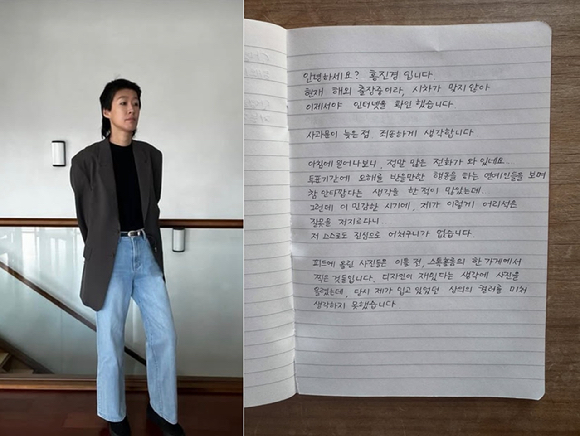 안녕하세요? 홍진경 입니다.
현재 해외 출장중이라, 시차가 맞지 않아
이제서야 인터넷을 확인했습니다.
사과문이 늦은점 죄송하게 생각합니다
아침에 일어나보니, 정말 많은 전화가 와 있데요.
투표기간에 오해를 받을만한 행동을 하는 연예인들을 보며
참 안타깝다는 생각을 한적이 많았는데..
그런데 이 민감한 시기에, 제가 이렇게 어리석은
잘못을 저지르다니..
저 스스로도 진심으로 어처구니가 없습니다.
피드에 올린 사진들은 이틀 전, 스톡홀름의 한 가게에서
찍은 것들입니다. 디자인이 재밌다는 생각에 사진을
올렸는데, 당시 제가 입고 있었던 상의의 컬러를 미처
생각하지 못했습니다